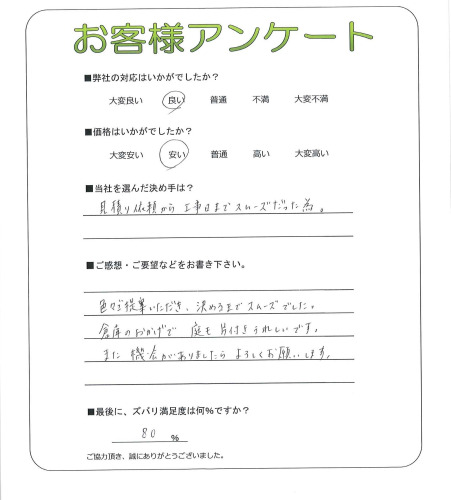 お客様アンケート
■弊社の対応はいかがでしたか？
大変良い 良い 普通 不満 大変不満
■価格はいかがでしたか？
大変安い 安い 普通 高い 大変高い
■当社を選んだ決め手は？
見積り依頼から工事日までスムーズだった為。
■ご感想・ご要望などをお書き下さい。
色々ご提案いただき、決めるまでスムーズでした。
倉庫のおかげで庭も片付きうれしいです。
また機会がありましたらよろしくお願いします。
■最後に、ズバリ満足度は何％ですか？
80 ％
ご協力頂き、誠にありがとうございました。